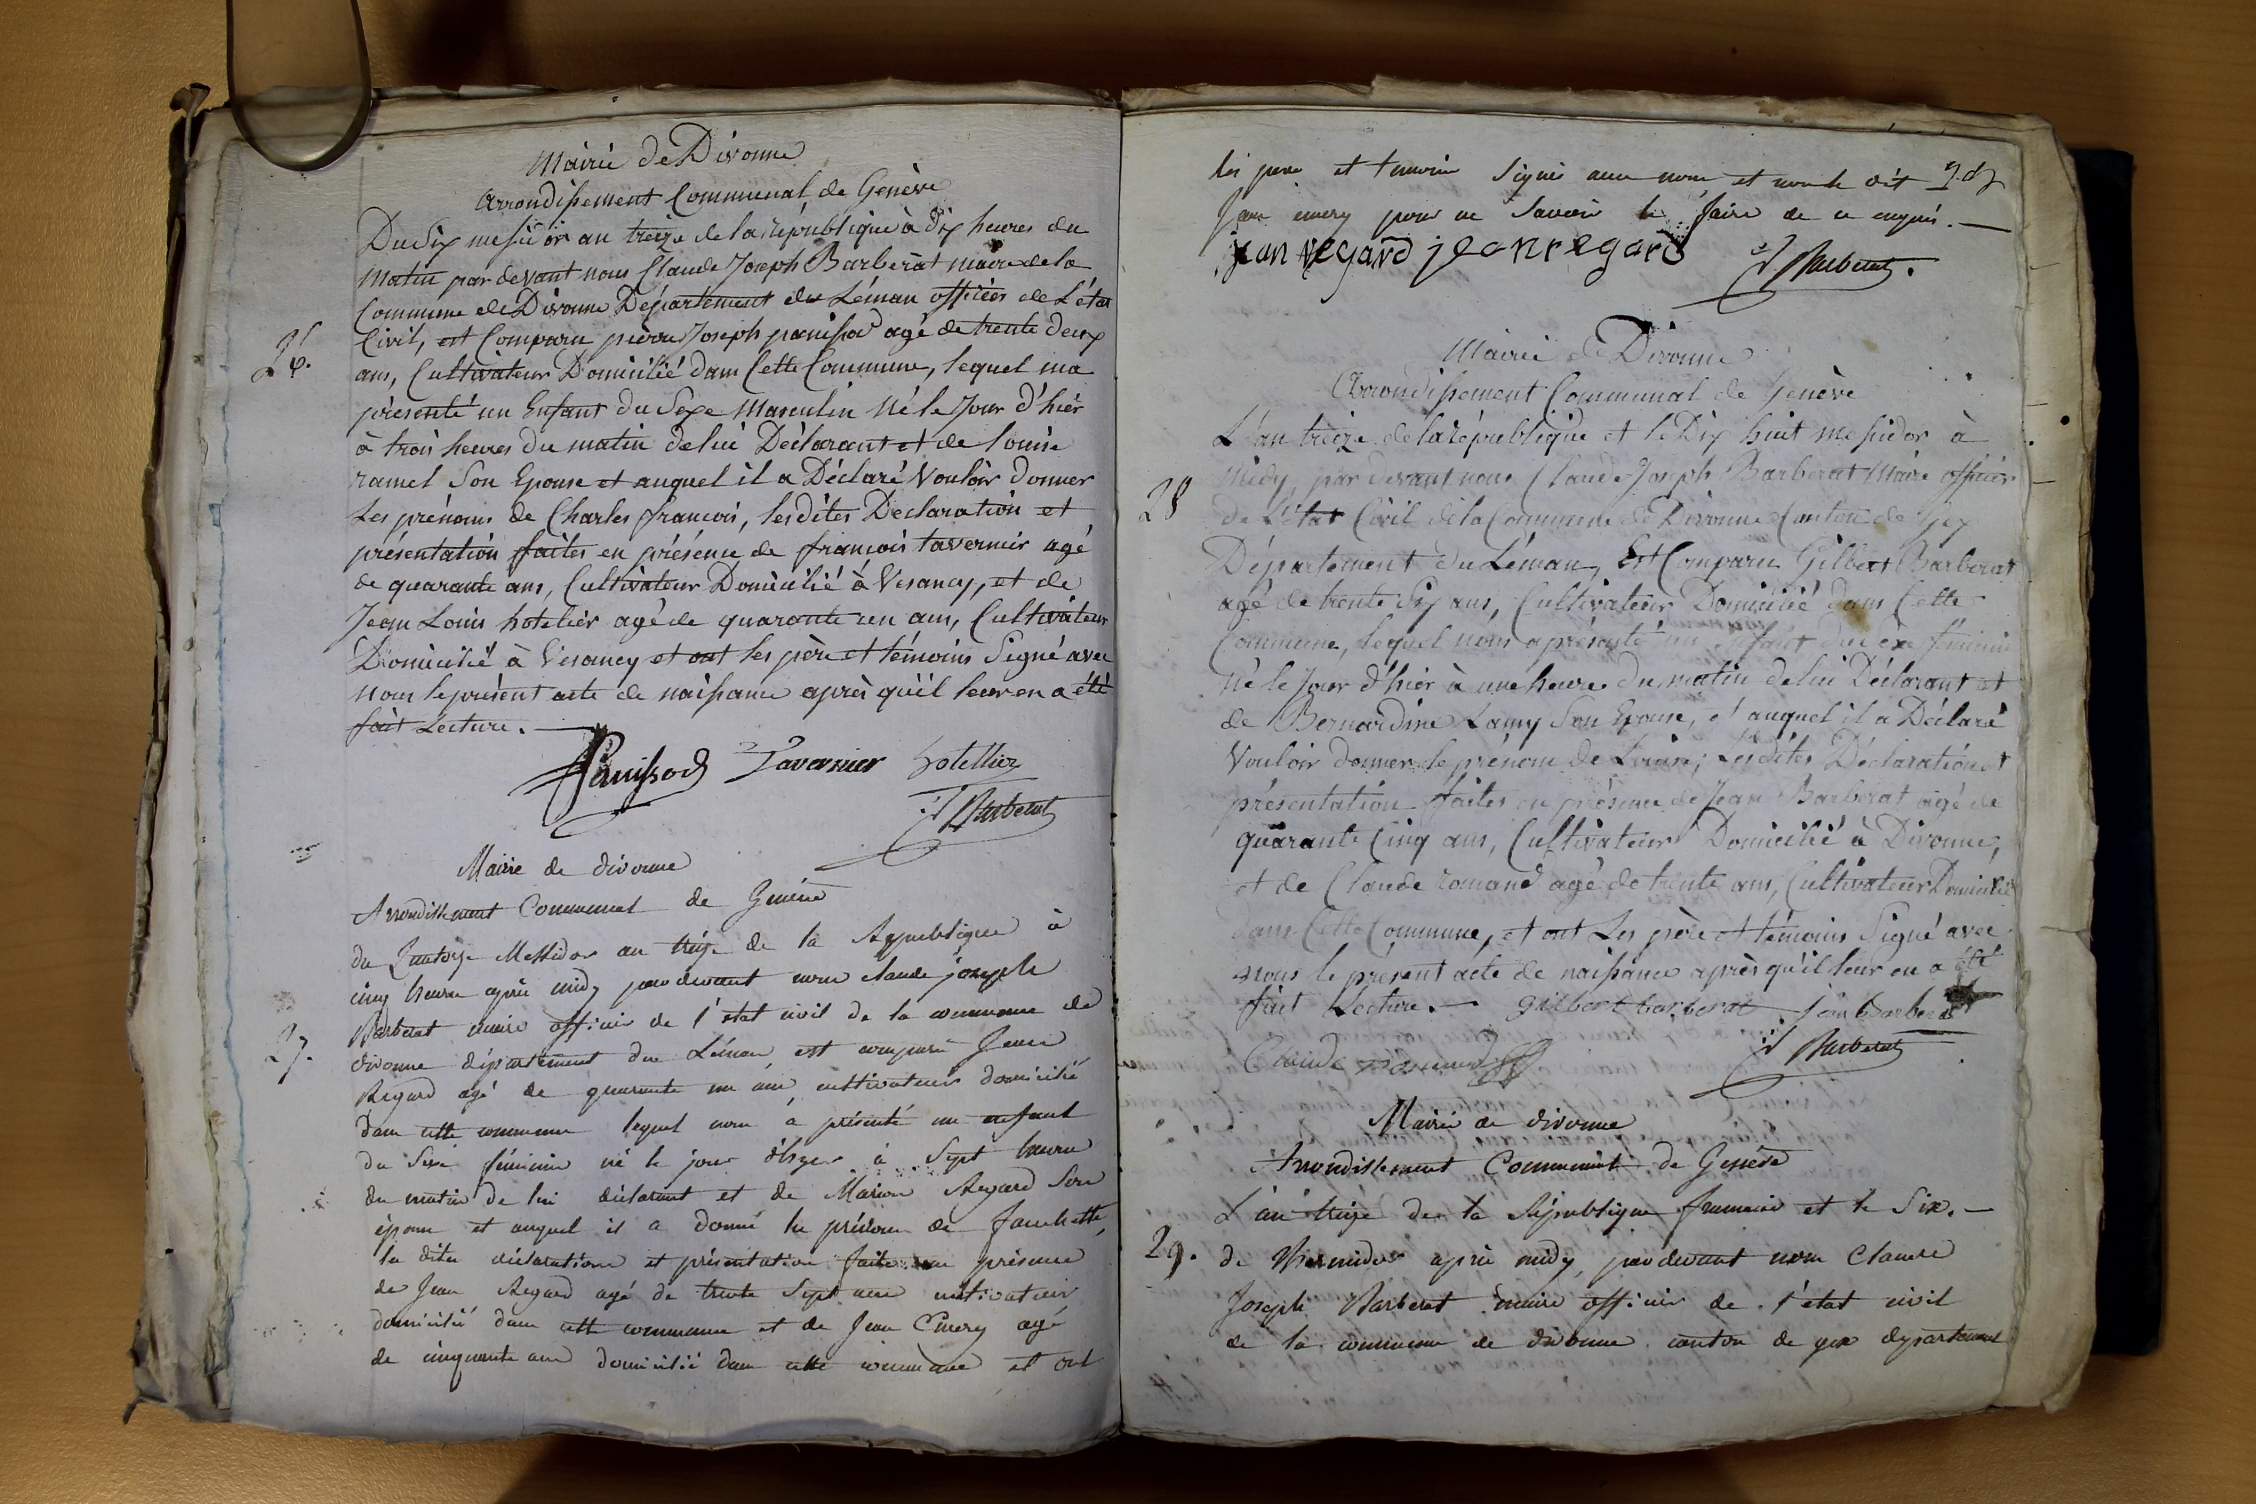 Mairie de Divonne
Arrondissement Communal de Genève
Du Six messidor an treize de la république à dix heures du
Matin par devant nous Claude Joseph Barberat maire de la
Commune de Divonne Département du Léman officier de L'état
26.
Civil, est Comparu pierre Joseph panissod agé de trente deux
ans, Cultivateur Domicilié dans Cette Commune, lequel ma
présenté un Enfant du Sexe Masculin Né le Jour d'hiér
à trois heures du matin de lui Déclarant et de Louise
ramel Son Epouse et auquel il a Déclaré Vouloir donner
Les prénoms de Charles françois, lesdites Déclaration et
présentation faites en présence de françois tavernier agé
de quarante ans, Cultivateur Domicilié à Vesancy, et de
Jean Louis hotelier agé de quarante un ans, Cultivateur
Domicilié à Vesancy et ont les père et témoins Signé avec
nous le présent acte de naissance après qu'il leur en a été
fait Lecture.
Panissod Tavernier hotellier
Barberat
Mairie de divonne
Arrondissement Communal de Genève
du Quatorze Messidor an treize de la République à
cinq heures après midy pardevant nous claude joseph
Barberat maire officier de l'état civil de la commune de
27.
divonne département du Léman est comparu Jean
Regard agé de quarante un ans cultivateur domicilié
dans cette commune lequel nous a présenté un enfant
du Sexe féminin né le jour d'hyer à Sept heures
du matin de lui déclarant et de Marion Regard Son
épouse et auquel il a donné le prénom de
les dites déclarations et présentation faites en présence
de Jean Regard agé de trente Sept ans cultivateur
domicilié dans cette commune et de Jean Emery agé
de cinquante ans domicilié dans cette commune et ont
les pere et temoins Signés avec nous et non le dit
Jean emery pour ne Savoir le faire de ce enquis.
jean regard jean regard
Barberat.
Mairie de Divonne
Arrondissement Communal de Genève
L'an treize de la république et le Dix huit messidor à
midy, par devant nous Claude Joseph Barberat Maire officier
28
de L'état Civil de la Commune de Divonne Canton de Gex
Département du Léman, Est Comparu Gilbert Barberat
agé de trente Six ans, Cultivateur Domicilié dans Cette
Commune, lequel nous a présenté un Enfant du sexe féminin
Né le Jour d'hier à une heure du matin de lui Déclarant et
de Bernardine Lamy Son Epouse, et auquel il a Déclaré
Vouloir donner le prénom de Louise; Lesdites Déclaration et
présentation faites en présence de Jean Barberat agé de
quarante Cinq ans, Cultivateur Domicilié à Divonne,
et de Claude romand agé de trente ans, Cultivateur Domicilié
dans Cette Commune, et ont Les père et témoins Signé avec
nous le présent acte de naissance après qu'il leur en a été
fait Lecture. gilbert barberat jean barberat
Claude romand Barberat
Mairie de divonne
Arrondissement Communal de Genève
L'an treize de la République française et le Six.
29.
de Thermidor après midy, pardevant nous Claude
Joseph Barberat maire officier de l'état civil
de la commune de divonne canton de gex département